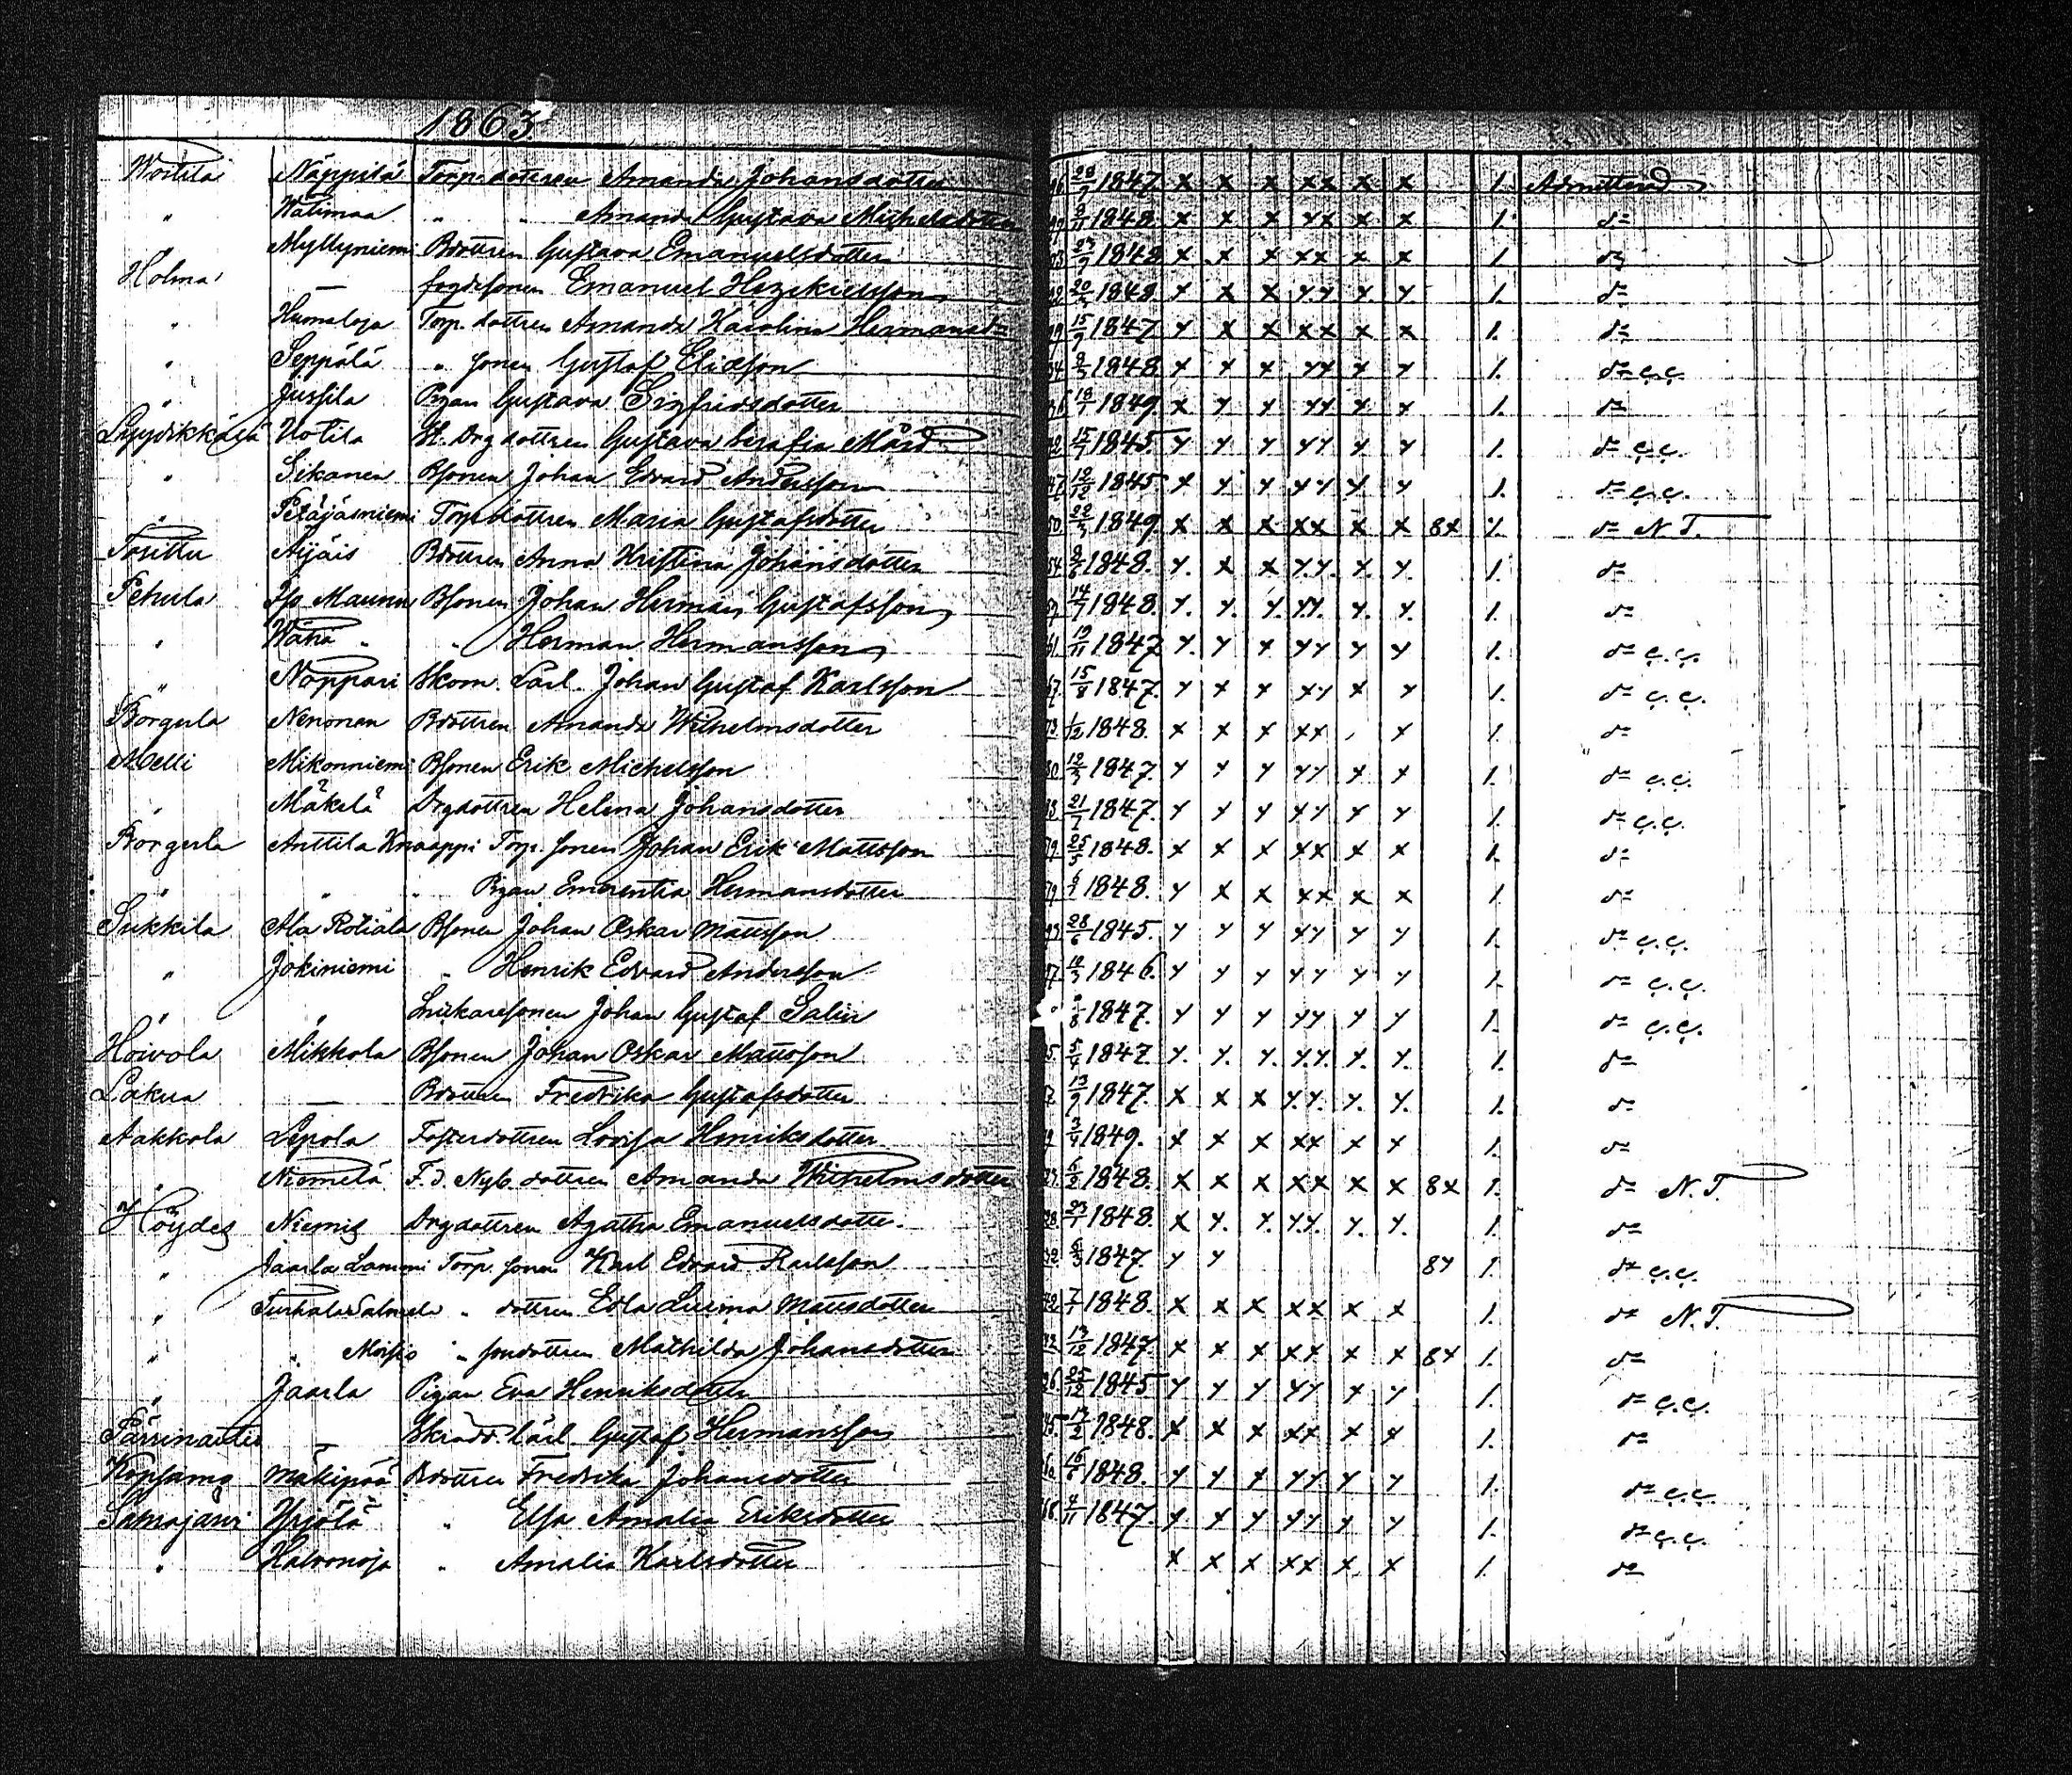 1863
Woitila Näppilä Torp. dottren Amanda Johansdotter 20/7 1847 x x x xx x x 1. Admitterad
" Wälimaa " " Amanda Gustava Michelsdotter 1848 x x x xx x x 1. do
Myllyniemi Bdottren Gustava Emanuelsdotter 1848 x x x xx x x 1. do
Holma — fogdesonen Emanuel Hezekielsson 1848 x x x xx x x 1. do
" Humaloja Torp. dottren Amanda Karolina Hermansd 1847 x x x xx x x 1. do
" Seppälä " sonen Gustaf Eliasson 1848 x x x xx x x 1. do c.c.
" Jussila Pigan Gustava Sigfridsdotter 1849 x x x xx x x 1. do
Lyydikkälä Uotila Drg dottren Gustava Serafia Mård 1845 x x x xx x x 1. do c.c.
" Sikanen Bsonen Johan Edvard Andersson 12/12 1845 x x x xx x x 1. do c.c.
" Petäjäsniemi Torpdottren Maria Gustafsdotter 22/3 1849 x x x xx x x 8x 1. do N.T.
Äijäis Bdottren Anna Kristina Johansdotter 1848. x. x x x.x. x. x. 1. do
Pehula Iso Maunu Bsonen Johan Herman Gustafsson 14/7 1848. x. x. x. x.x. x. x. 1. do
" Wähä " " Herman Hermansson 1847 x. x x xx x x 1. do c.c.
" Noppari Skom. Lärl. Johan Gustaf Karlsson 15/8 1847. x x x xx x x 1. do c.c.
Borgerla Nenonen Bdottren Amanda Wilhelmsdotter 1/2 1848. x x x xx , x 1. do
Melli Mikonniemi Bsonen Erik Michelsson 1847. x x x xx x x 1. do c.c.
" Mäkelä Drgdottren Helena Johansdotter 1847. x x x xx x x 1. do c.c.
Borgerla Anttila Knaappi Torp. sonen Johan Erik Mattsson 25/5 1848. x x x xx x x 1. do
" " " Pigan Emerentia Hermansdotter 1848. x x x xx x x 1. do
Sukkila Ala Rotiala Bsonen Johan Oskar Mattsson 28/6 1845. x x x xx x x 1. do c.c.
" Jokiniemi " Henrik Edvard Andersson 1846. x x x xx x x 1. do c.c.
" " Lukaresonen Johan Gustaf Salin 1847. x x x xx x x 1. do c.c.
Höivola Mikkola Bsonen Johan Oskar Mattsson 1847 x. x. x. x.x. x. x. 1. do
Lakua — Bdottren Fredrika Gustafsdotter 1847. x x x x.x. x. x. 1. do
Aakkola Lepola Fosterdottren Lovisa Henriksdotter 1849. x x x xx x x 1. do
" Niemelä F.d. Nyb. dottren Amanda Wilhelmsdotter 6/2 1848. x x x xx x x 8x 1. do N.T.
Höydes Niemis Drgdottren Agatha Emanuelsdotte. 23/1 1848. x x. x. x.x. x. x. 1. do
" Jaarla Lammi Torp. sonen Karl Edvard Karlsson 1847. x x 8x 1. do c.c.
" " dottren Edla Mattsdotter 7/1 1848. x x x xx x x 1. do N.T.
" " Moisio " sondottren Mathilda Johansdotter 13/12 1847. x x x xx x x 8x 1. do
" Jaarla Pigan Eva Henriksdotter 25/12 1845 x x x xx x x 1. do c.c.
— Skrädd. lärl. Gustaf Hermansson 1848. x x x xx x x 1. do
Köpsamo Mäkipää Bdottren Fredrika Johansdotter 1848. x x x xx x x 1. do c.c.
Yrjölä " Elsa Amalia Eriksdotter 1847. x x x xx x x 1. do c.c.
" Halvonoja " Amalia Karlsdotter x x x xx x x 1. do